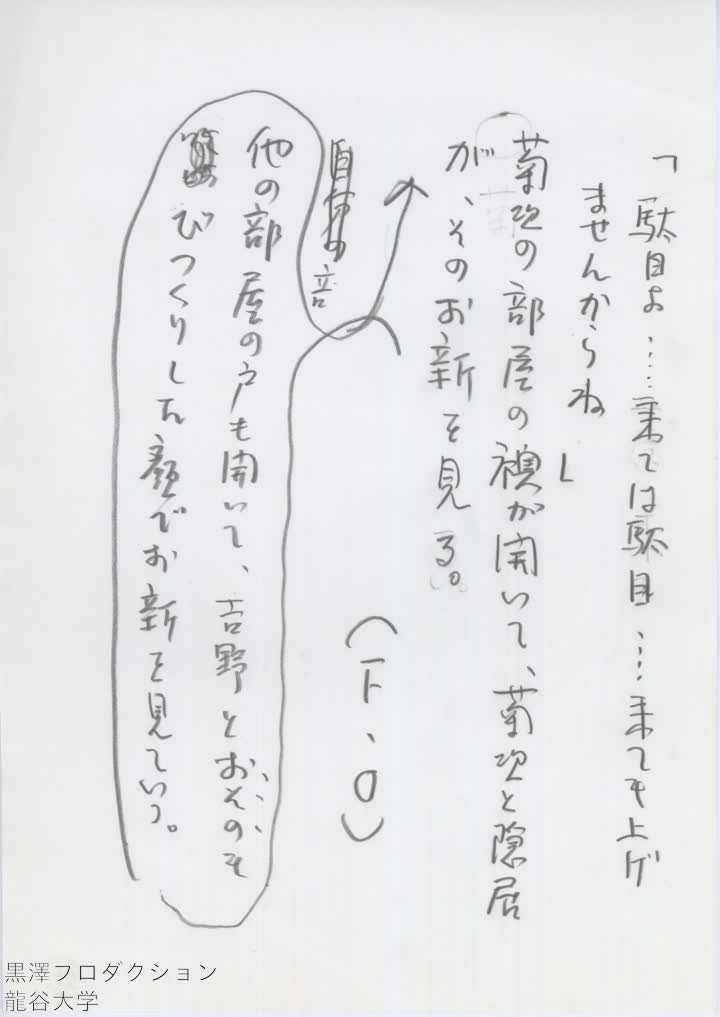 「駄目よ……来ては駄目……来ても上げ
ませんからね」
菊次の部屋の襖が開いて、菊次と隠居
が、そのお新を見る。
(F、O)
自分の
他の部屋の戸も開いて、吉野とおそのも
びっくりした顔でお新を見ている。
黒澤プロダクション
龍谷大学